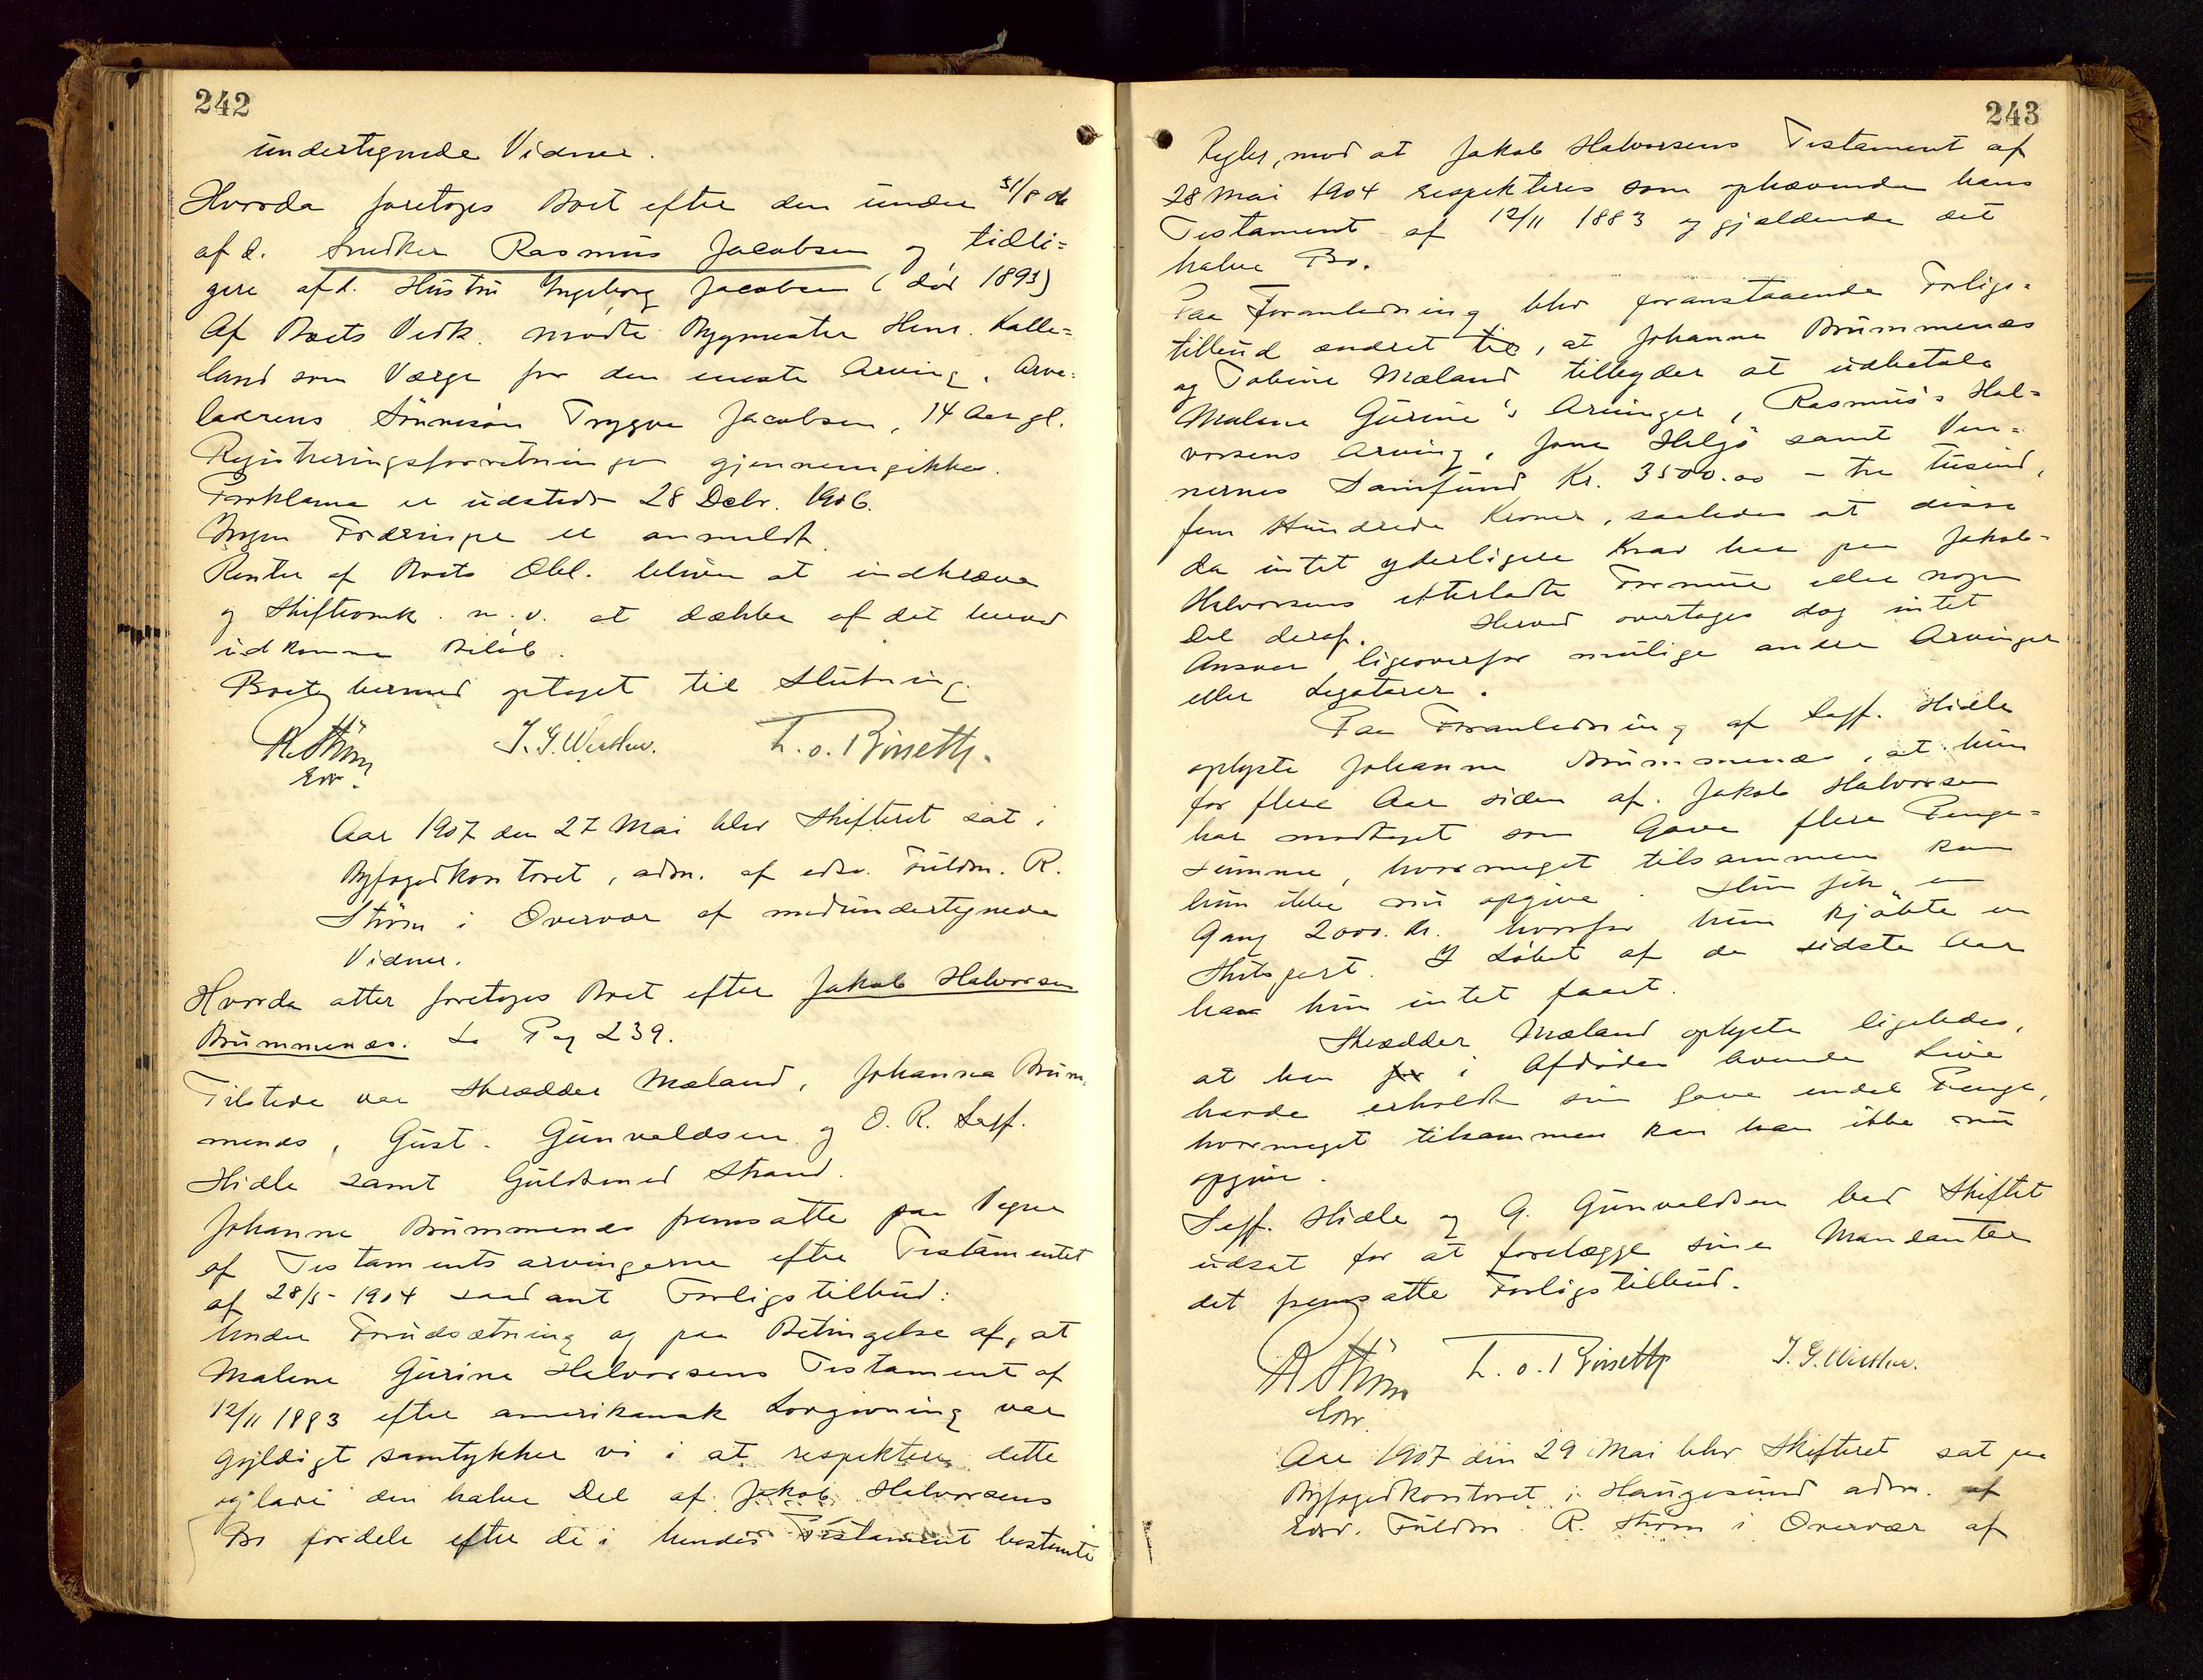 242
undertegnede Vidner.
Hvorda foretoges Boet efter den under 31/8 06
afd. Snedker Rasmus Jacobsen og tidli=
gere afd. Hustru Ingeborg Jacobsen (død 1893)
Af Boets Vedk. mødte Bygmester Henr. Kalle=
land som Værge for den eneste Arving, Arve=
laderens Sønnesøn Trygve Jacobsen, 14 Aar gl.
Registreringsforretningen gjennemgikkes.
Proklama er udstedt 28 Debr. 1906.
Ingen Fordringer er anmeldt.
Renter af Boets Obl. bliver at indkræve
og Skifteomk. m.v. at dække af det herved
udkomne Beløb.
Boet hermed optaget til Slutning.
R Strøm
Edsv.
T. O. Risseth.
Aar 1907 den 27 Mai blev Skifteret sat i
Byfogedkontoret, adm. af edsv. Fuldm. R.
Strøm i Overvær af medundertegnede
Vidner.
Hvorda atter foretoges Boet efter Jakob Halvorsen
Brummenæs. Se Pag 239.
Tilstede var Skrædder Mæland, Johanna Brum=
menæs, Gust. Gunvaldsen og O. R. Sagf.
Hidle samt Guldsmed Strand.
Johanne Brummenæs fremsatte paa Vegne
af Testamentsarvingerne efter Testamentet
af 28/5-1904 saadant Forligstilbud:
Under Forudsætning og paa Betingelse af, at
Malene Gurine Halvorsens Testament af
12/11 1883 efter amerikansk Lovgivning var
gyldigt samtykker vi i at respektere dette
og lade den halve Del af Jakob Halvorsens
Bo fordele efter de i hendes Testament bestemte
243
Regler, mod at Jakob Halvorsens Testament af
28 Mai 1904 respekteres som ophævende hans
Testament af 12/11 1883 og gjældende det
halve Bo.
Paa Foranledning blev foranstaaende Forligs=
tilbud ændret til, at Johanne Brummenæs
og Tobine Mæland tilbyder at udbetale
Malene Gurine's Arvinger, Rasmus Hal=
vorsens Arving, Jone Helgø samt Ven=
nernes Samfund Kr. 3500.00 - tre tusind,
fem Hundrede Kroner, saaledes at disse
da intet yderligere Krav har paa Jakob
Halvorsens efterladte Formue eller nogen
Del deraf. Herved overtages dog intet
Ansvar ligeoverfor mulige andre Arvinger
eller Legatarer.
Paa Foranledning af Sagf. Hidle
oplyste Johanne Brummenæs, at hun
for flere Aar siden af Jakob Halvorsen
har modtaget som Gave flere Penge=
summe, hvormeget tilsammen kan
hun ikke nu opgive. Hun fik en
Gang 2000. Kr. hvorfor hun kjøbte en
Skibspart. I Løbet af de sidste Aar
har hun intet faaet.
Skrædder Mæland oplyste ligeledes,
at han i Afdødes levende Live
havde erholdt som Gave endel Penge,
hvormeget tilsammen kan han ikke nu
opgive.
Sagf. Hidle og G. Gunvaldsen bad Skiftet
udsat for at forelægge sine Mandanter
det fremsatte Forligstilbud.
R Strøm
Edsv.
T. O. Risseth
Aar 1907 den 29 Mai blev Skifteret sat paa
Byfogedkontoret i Haugesund adm. af
Edsv. Fuldm. R. Strøm i Overvær af